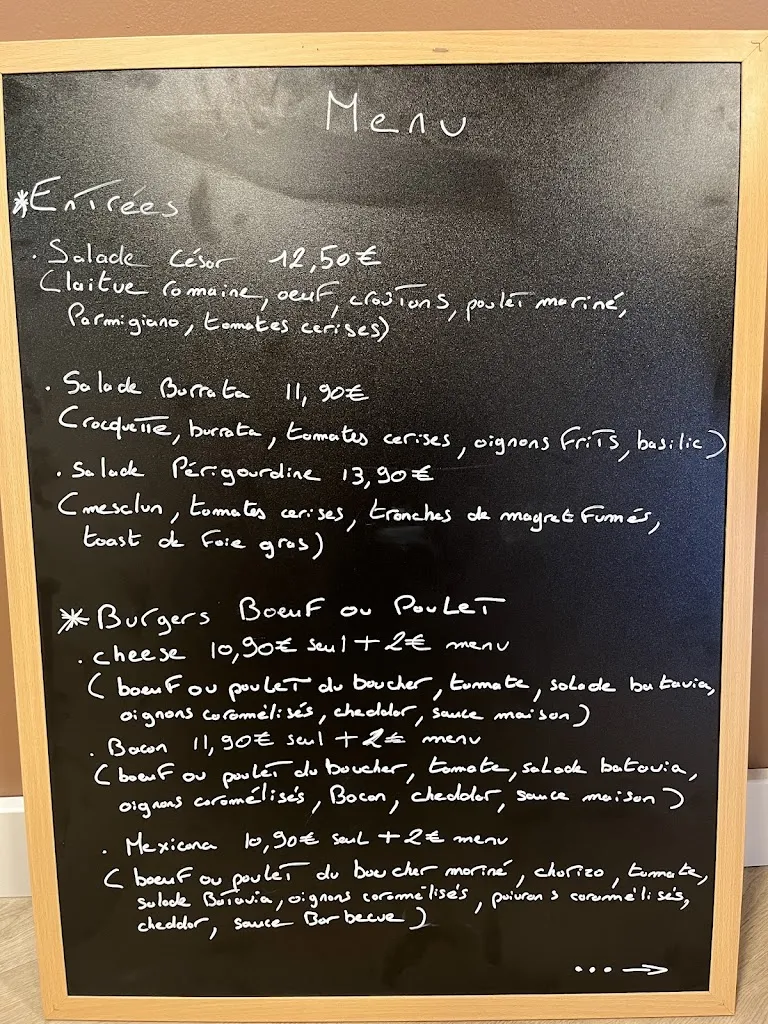 Menu
*Entrées
. Salade César 12,50€
(laitue romaine, oeuf, croûtons, poulet mariné,
Parmigiano, tomates cerises)
. Salade Burrata 11,90€
(rocquette, burrata, tomates cerises, oignons frits, basilic)
. Salade Périgourdine 13,90€
(mesclun, tomates cerises, tranches de magret fumés,
toast de foie gras)
* Burgers Boeuf ou Poulet
. cheese 10,90€ seul + 2€ menu
(boeuf ou poulet du boucher, tomate, salade batavia,
oignons caramélisés, cheddar, sauce maison)
. Bacon 11,90€ seul + 2€ menu
(boeuf ou poulet du boucher, tomate, salade batavia,
oignons caramélisés, Bacon, cheddar, sauce maison)
. Mexicana 10,90€ seul + 2€ menu
(boeuf ou poulet du boucher mariné, chorizo, tomate,
salade Batavia, oignons caramélisés, poivrons caramélisés,
cheddar, sauce Barbecue)
... →